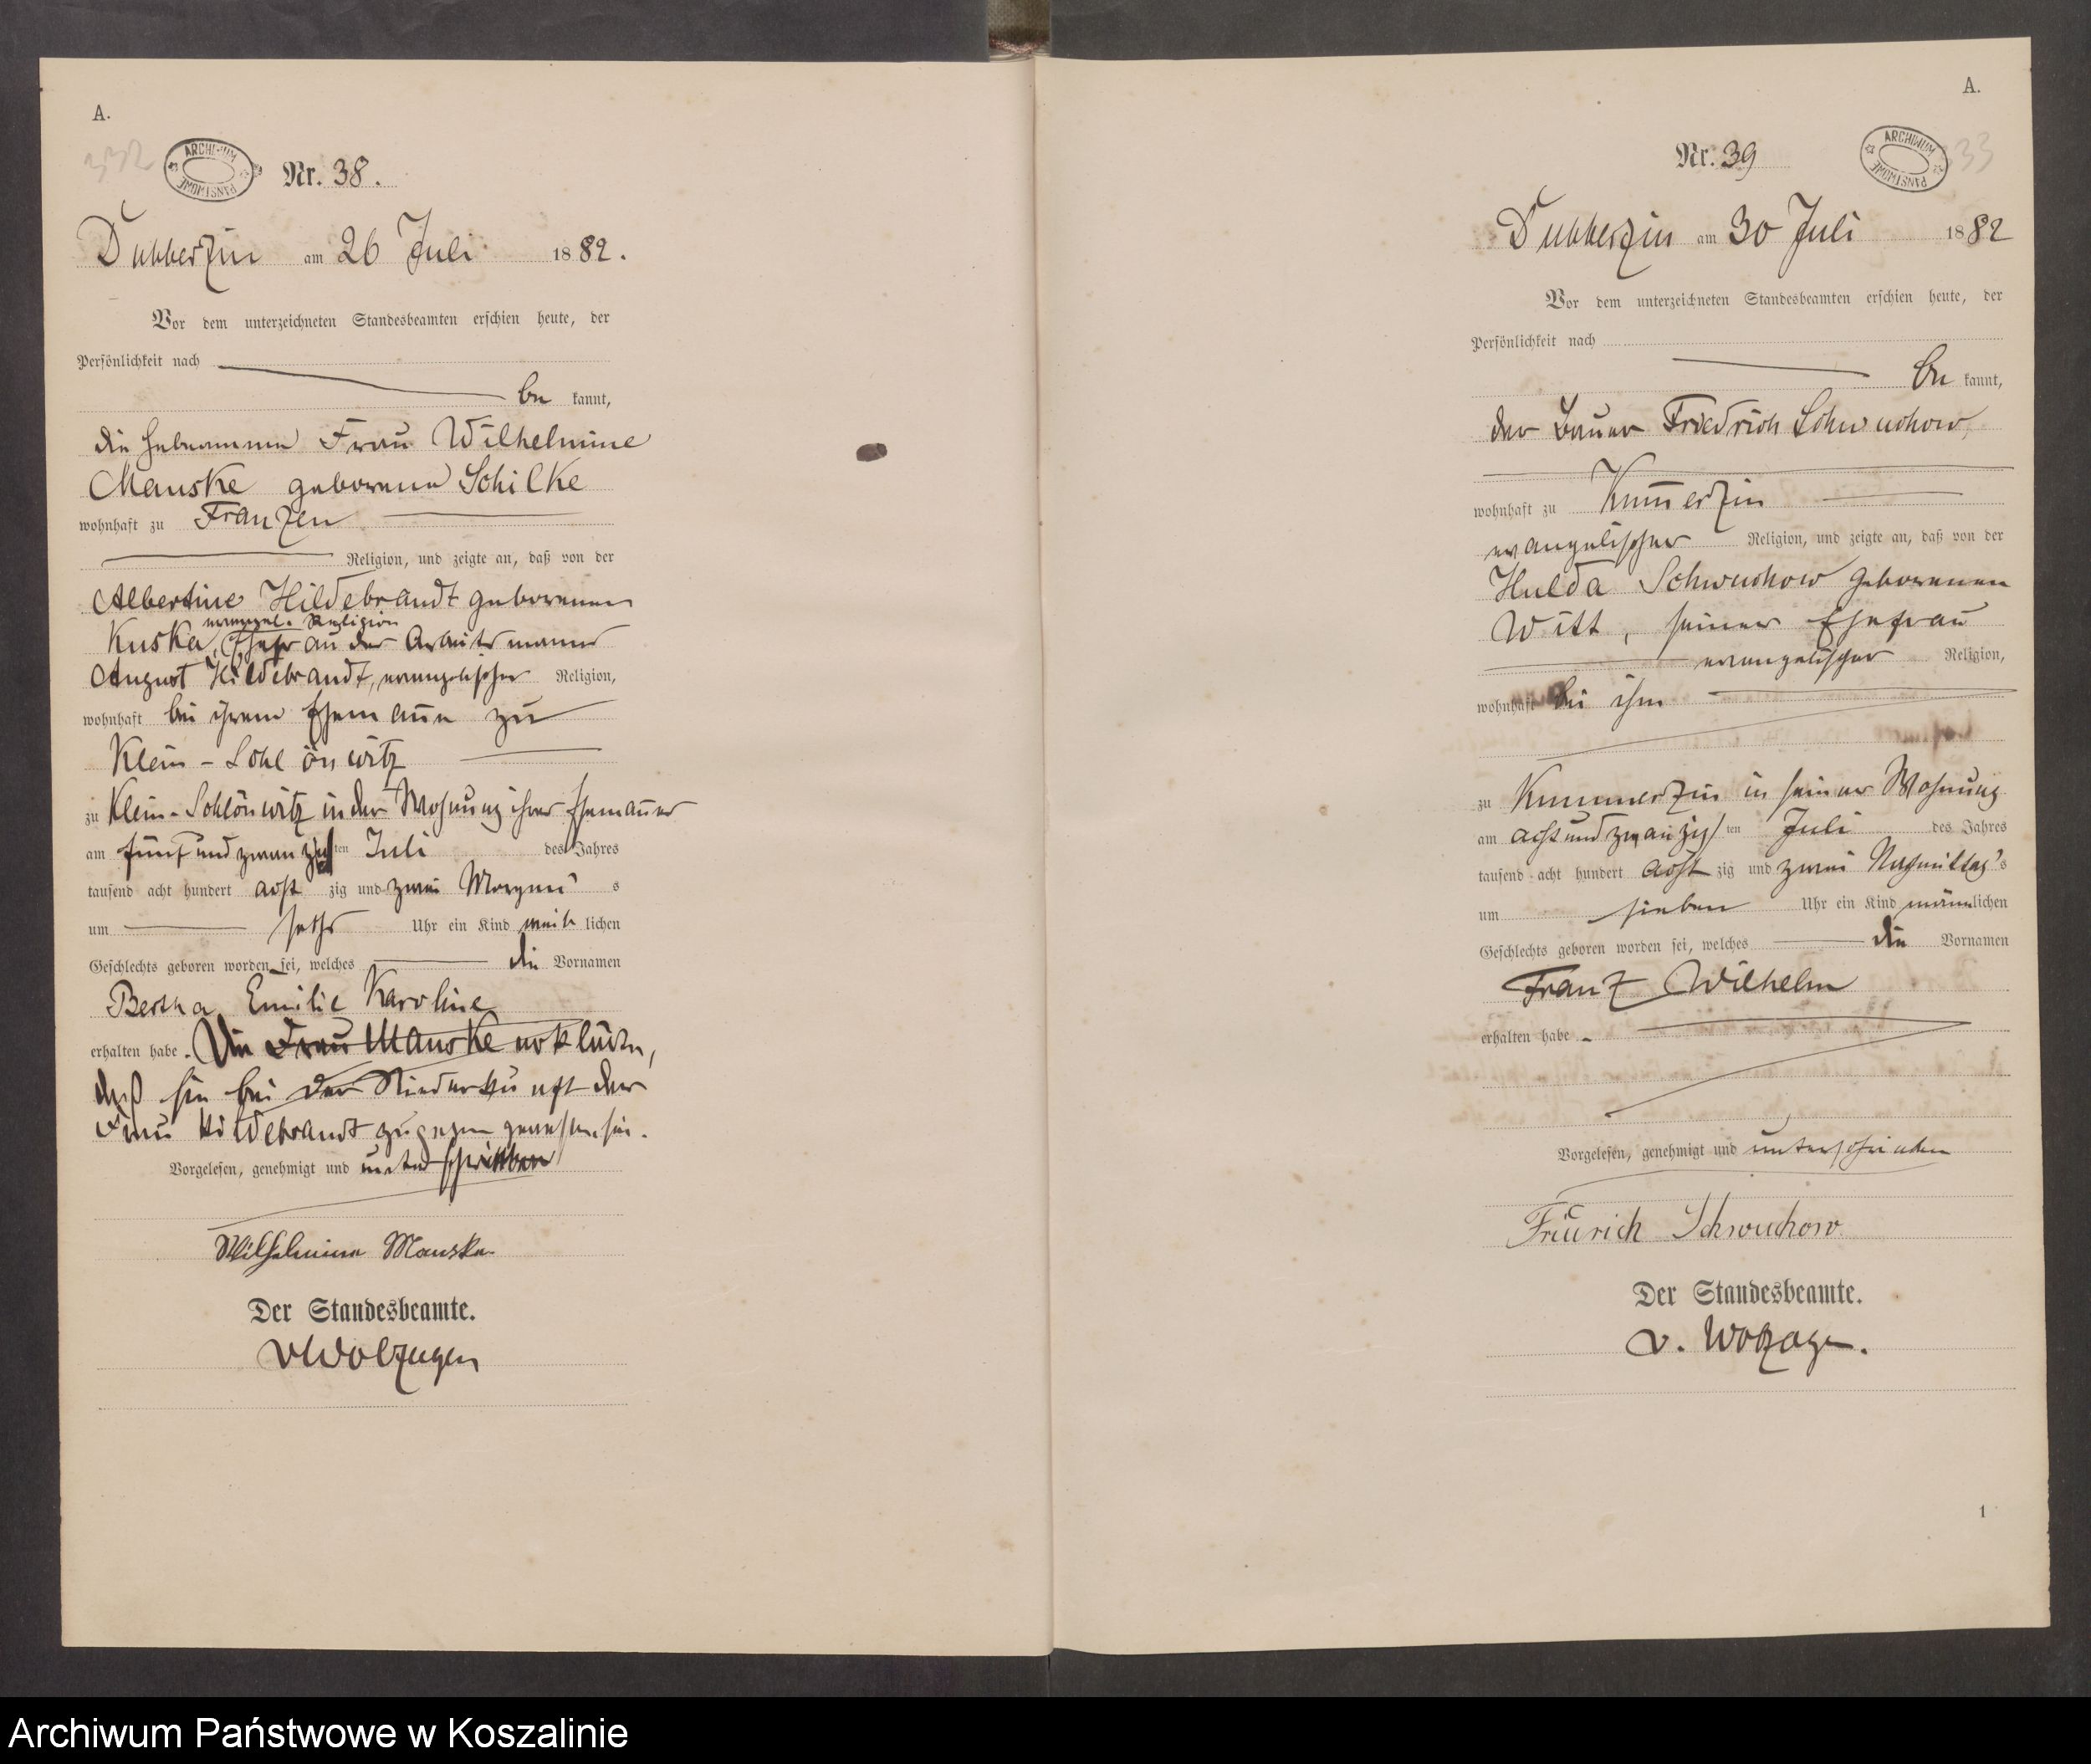 A.
332
ARCHIWUM PAŃSTWOWE
Nr. 38.
Dubberzin am 26 Juli 1882.
Vor dem unterzeichneten Standesbeamten erschien heute, der
Persönlichkeit nach
be kannt,
die Hebamme Frau Wilhelmine
Manske geborene Schilke
wohnhaft zu Franzen
Religion, und zeigte an, daß von der
Albertine Hildebrandt geborenen
evangel. Religion
Kuska, Ehefrau des Arbeitsmanns
August Hildebrandt, evangelischer Religion,
wohnhaft bei ihrem Ehemanne zu
Klein-Schlönwitz
zu Klein-Schlönwitz in der Wohnung ihres Ehemannes
am fünf und zwanzigsten Juli des Jahres
tausend acht hundert acht zig und zwei Morgen s
um sechs Uhr ein Kind weib lichen
Geschlechts geboren worden sei, welches die Vornamen
Bertha Emilie Karoline
erhalten habe. Die Frau Manske erklärte,
daß sie bei der Niederkunft der
Frau Hildebrandt zugegen gewesen sei.
Vorgelesen, genehmigt und unterschrieben
Wilhelmine Manske
Der Standesbeamte.
v Wolzogen
A.
Nr. 39
ARCHIWUM PAŃSTWOWE
33
Dubberzin am 30 Juli 1882
Vor dem unterzeichneten Standesbeamten erschien heute, der
Persönlichkeit nach
be kannt,
der Bauer Friedrich Schwuchow,
wohnhaft zu Kum̄erzin
evangelischer Religion, und zeigte an, daß von der
Hulda Schwuchow geborenen
Witt, seiner Ehefrau
evangelischer Religion,
wohnhaft bei ihm
zu Kummerzin in seiner Wohnung
am acht und zwanzigsten Juli des Jahres
tausend acht hundert acht zig und zwei Nachmittag's
um sieben Uhr ein Kind männlichen
Geschlechts geboren worden sei, welches die Vornamen
Franz Wilhelm
erhalten habe.
Vorgelesen, genehmigt und unterschrieben
Schwuchow
Der Standesbeamte.
v. Wolzogen.
1
Archiwum Państwowe w Koszalinie